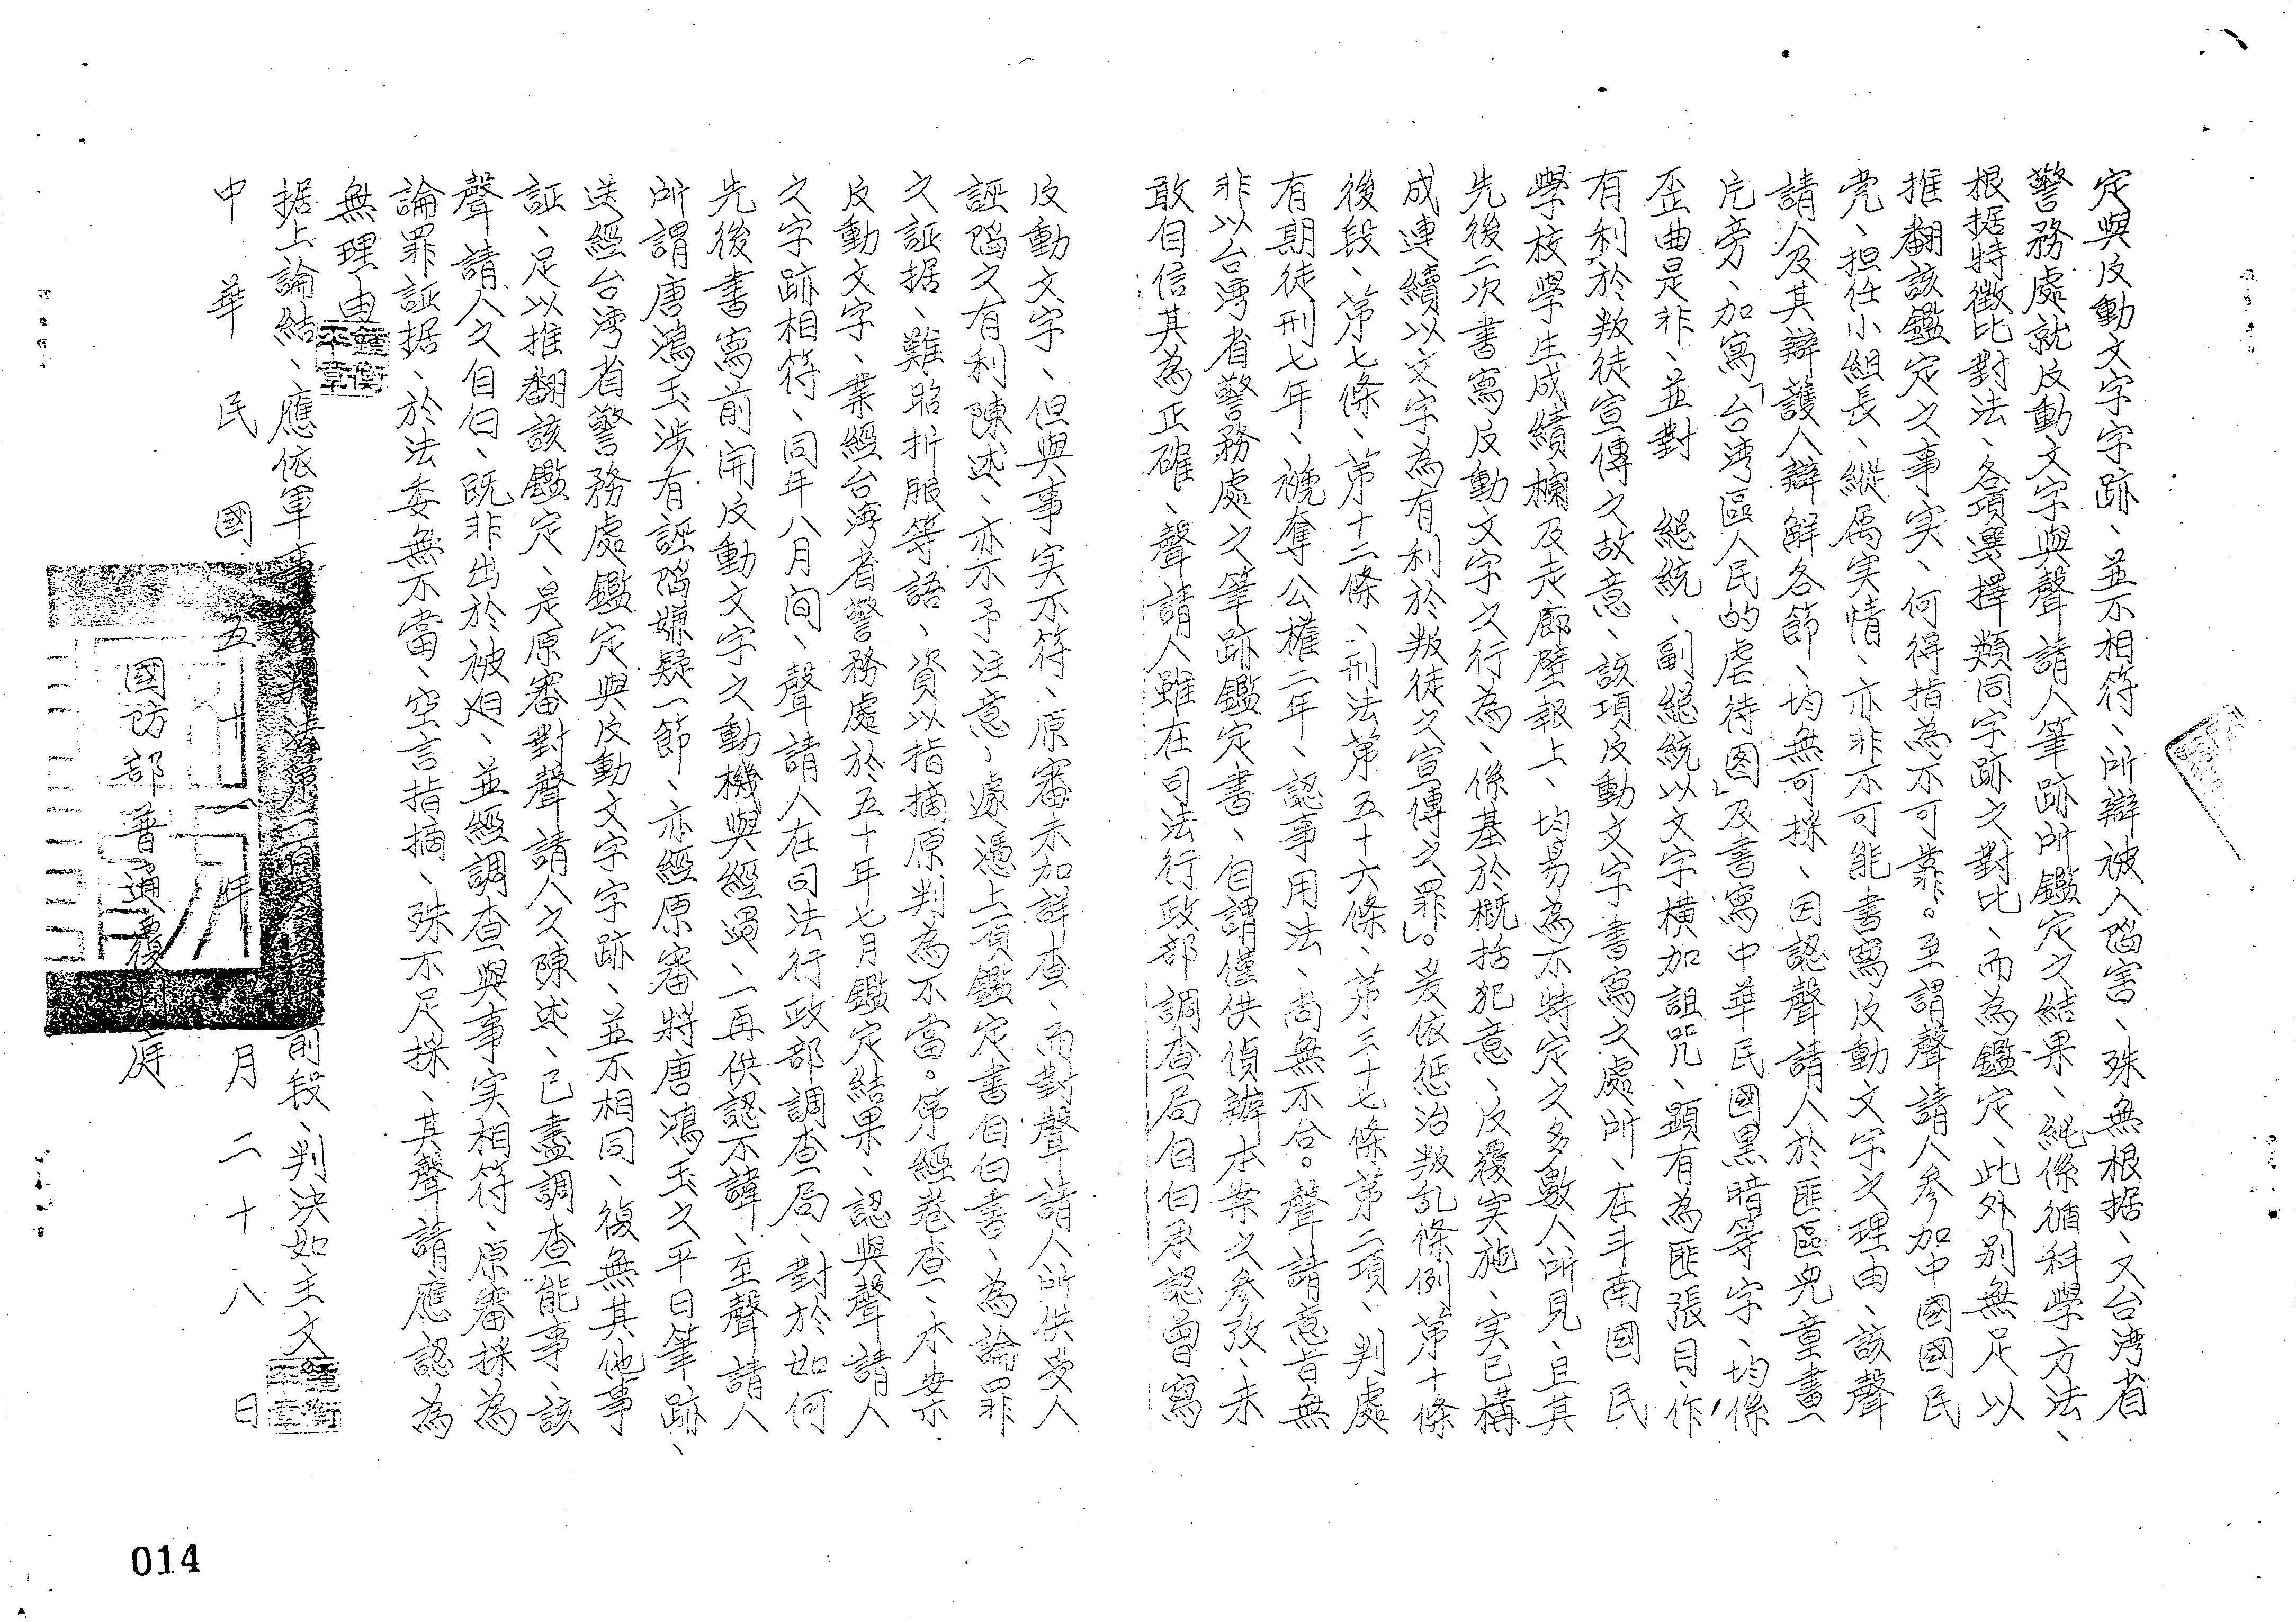 定與反動文字字跡、並不相符、所辯被人陷害、殊無根据、又台湾省
警務處就反動文字與聲請人筆跡所鑑定之結果、純係循科學方法、
根据特徵比對法、各項選擇類同字跡之對比、而為鑑定、此外別無足以
推翻該鑑定之事实、何得指為不可靠。至謂聲請人參加中國國民
党、担任小組長、縱属实情、亦非不可能書寫反動文字之理由、該聲
請人及其辯護人辯解各節、均無可採、因認聲請人於匪區兒童畫
片旁、加寫「台湾區人民的虐待图」及書寫中華民國黑暗等字、均係
歪曲是非、並對 總統、副總統以文字橫加詛咒、顯有為匪張目、作
有利於叛徒宣傳之故意、該項反動文字書寫之處所、在斗南國民
學校學生成績欄及走廊壁報上、均易為不特定之多數人所見、且其
先後二次書寫反動文字之行為、係基於概括犯意、反覆实施、实已構
成連續以文字為有利於叛徒之宣傳之罪」。爰依惩治叛乱條例第十條
後段、第七條、第十二條、刑法第五十六條、第三十七條第二項、判處
有期徒刑七年、褫奪公權二年、認事用法、尚無不合。聲請意旨無
非以台湾省警務處之筆跡鑑定書、自謂僅供偵辦本案之參攷、未
敢自信其為正確、聲請人雖在司法行政部調查局自白承認曾寫
反動文字、但與事实不符、原審未加詳查、而對聲請人所供受人
誣陷之有利陳述、亦不予注意、遽憑上項鑑定書自白書、為論罪
之証据、難昭折服等語、資以指摘原判為不當。第經卷查、本案
反動文字、業經台湾省警務處於五十年七月鑑定結果、認與聲請人
之字跡相符、同年八月间、聲請人在司法行政部調查局、對於如何
先後書寫前開反動文字之動機與經過、一再供認不諱、至聲請人
所謂唐鴻玉涉有誣陷嫌疑一節、亦經原審將唐鴻玉之平日筆跡、
送經台湾省警務處鑑定與反動文字字跡、並不相同、復無其他事
証、足以推翻該鑑定、是原審對聲請人之陳述、已盡調查能事、該
聲請人之自白、既非出於被迫、並經調查與事実相符、原審採為
論罪証据、於法委無不當、空言指摘、殊不足採、其聲請應認為
無理由
据上論結、應依軍事審判法第二百零 前段、判決如主文。
中華民國五十一年 月二十八日
國防部普通覆判庭
014